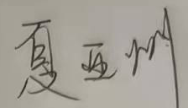 夏亚州